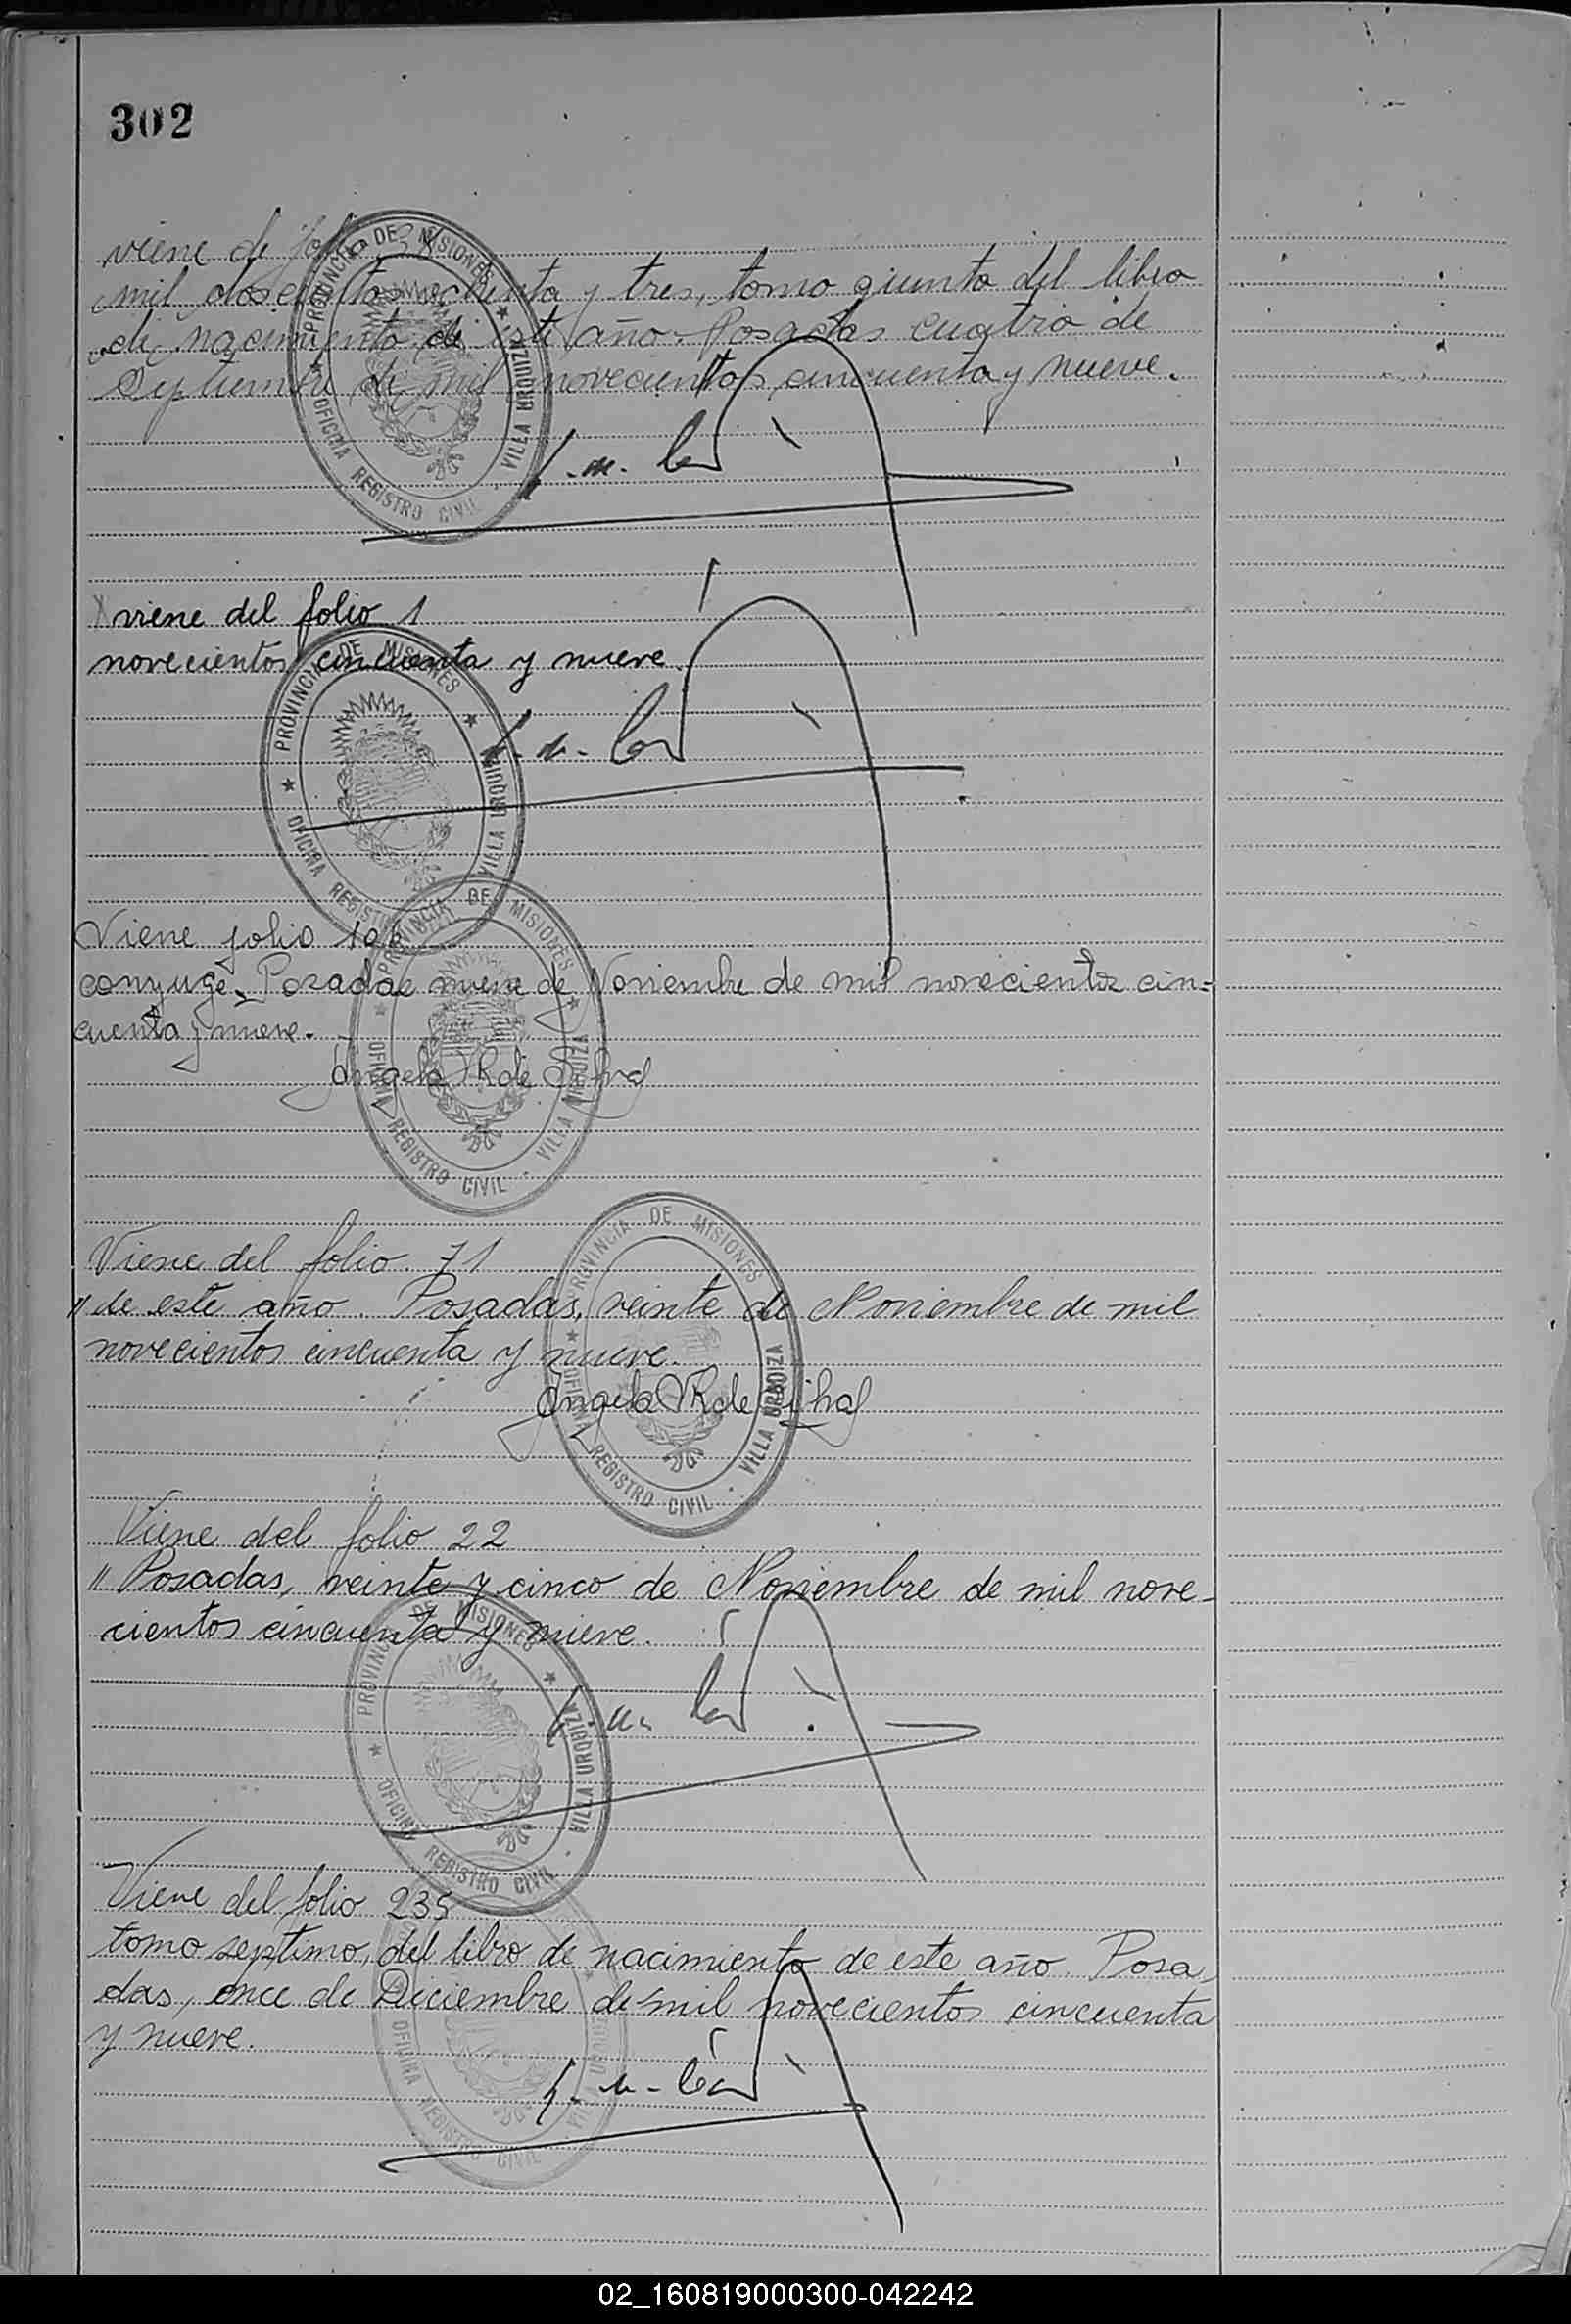 302
viene de folio
mil doscientos ochenta y tres, tomo quinto del libro
de nacimiento de este año. Posadas cuatro de
Septiembre de mil novecientos cincuenta y nueve.
PROVINCIA DE MISIONES
OFICINA REGISTRO CIVIL - VILLA URQUIZA
viene del folio 1
novecientos cincuenta y nueve.
PROVINCIA DE MISIONES
OFICINA REGISTRO CIVIL - VILLA URQUIZA
Viene folio 106
conyuge. Posadas nueve de Noviembre de mil novecientos cin=
cuenta y nueve.
Angela R de Silva
PROVINCIA DE MISIONES
OFICINA REGISTRO CIVIL - VILLA URQUIZA
Viene del folio. 71
" de este año. Posadas, veinte de Noviembre de mil
novecientos cincuenta y nueve.
Angela R de Silva
PROVINCIA DE MISIONES
OFICINA REGISTRO CIVIL - VILLA URQUIZA
Viene del folio 22
" Posadas, veinte y cinco de Noviembre de mil nove-
cientos cincuenta y nueve.
PROVINCIA DE MISIONES
OFICINA REGISTRO CIVIL - VILLA URQUIZA
Viene del folio 235
tomo septimo, del libro de nacimiento de este año. Posa
das, once de Diciembre de mil novecientos cincuenta
y nueve.
OFICINA REGISTRO CIVIL
02_160819000300-042242